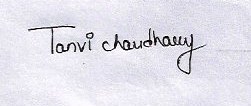 Tanvi chaudhary